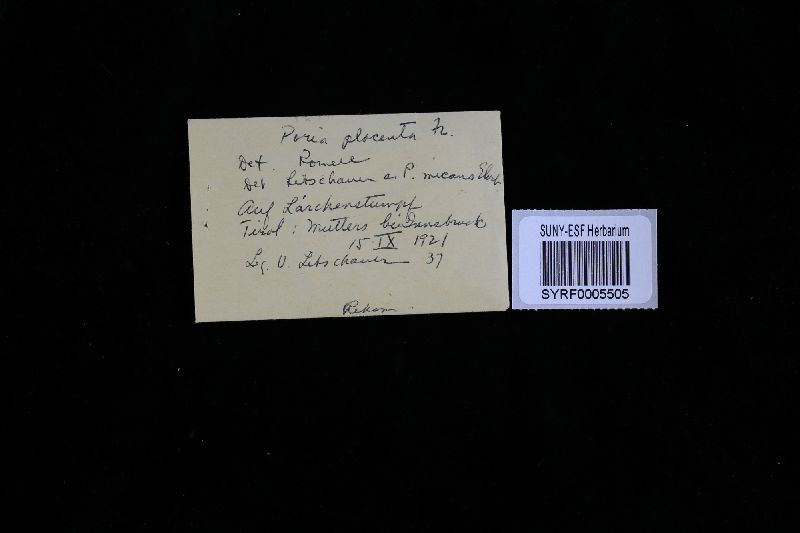 Poria placenta Fr.
Det. Romell
Det Litschauer as P. micans Ehrb
Auf Lärchenstumpf
Tirol: Mutters bei Innsbruck
15 IX 1921
Lg. V. Litschauer 37
SUNY-ESF Herbarium
SYRF0005505